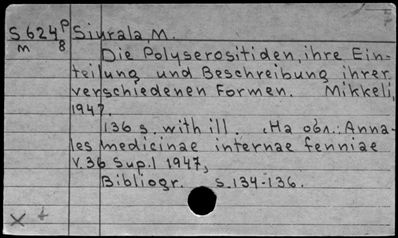 S 624 P/8 Siurala, M.
m
Die Polyserositiden, ihre Ein-
teilung und Beschreibung ihrer
verschiedenen Formen. Mikkeli,
1947.
136 s. with ill. (На обл.: Anna-
les medicinae internae fenniae
V. 36 Sup. 1 1947,
Bibliogr. s. 134-136.